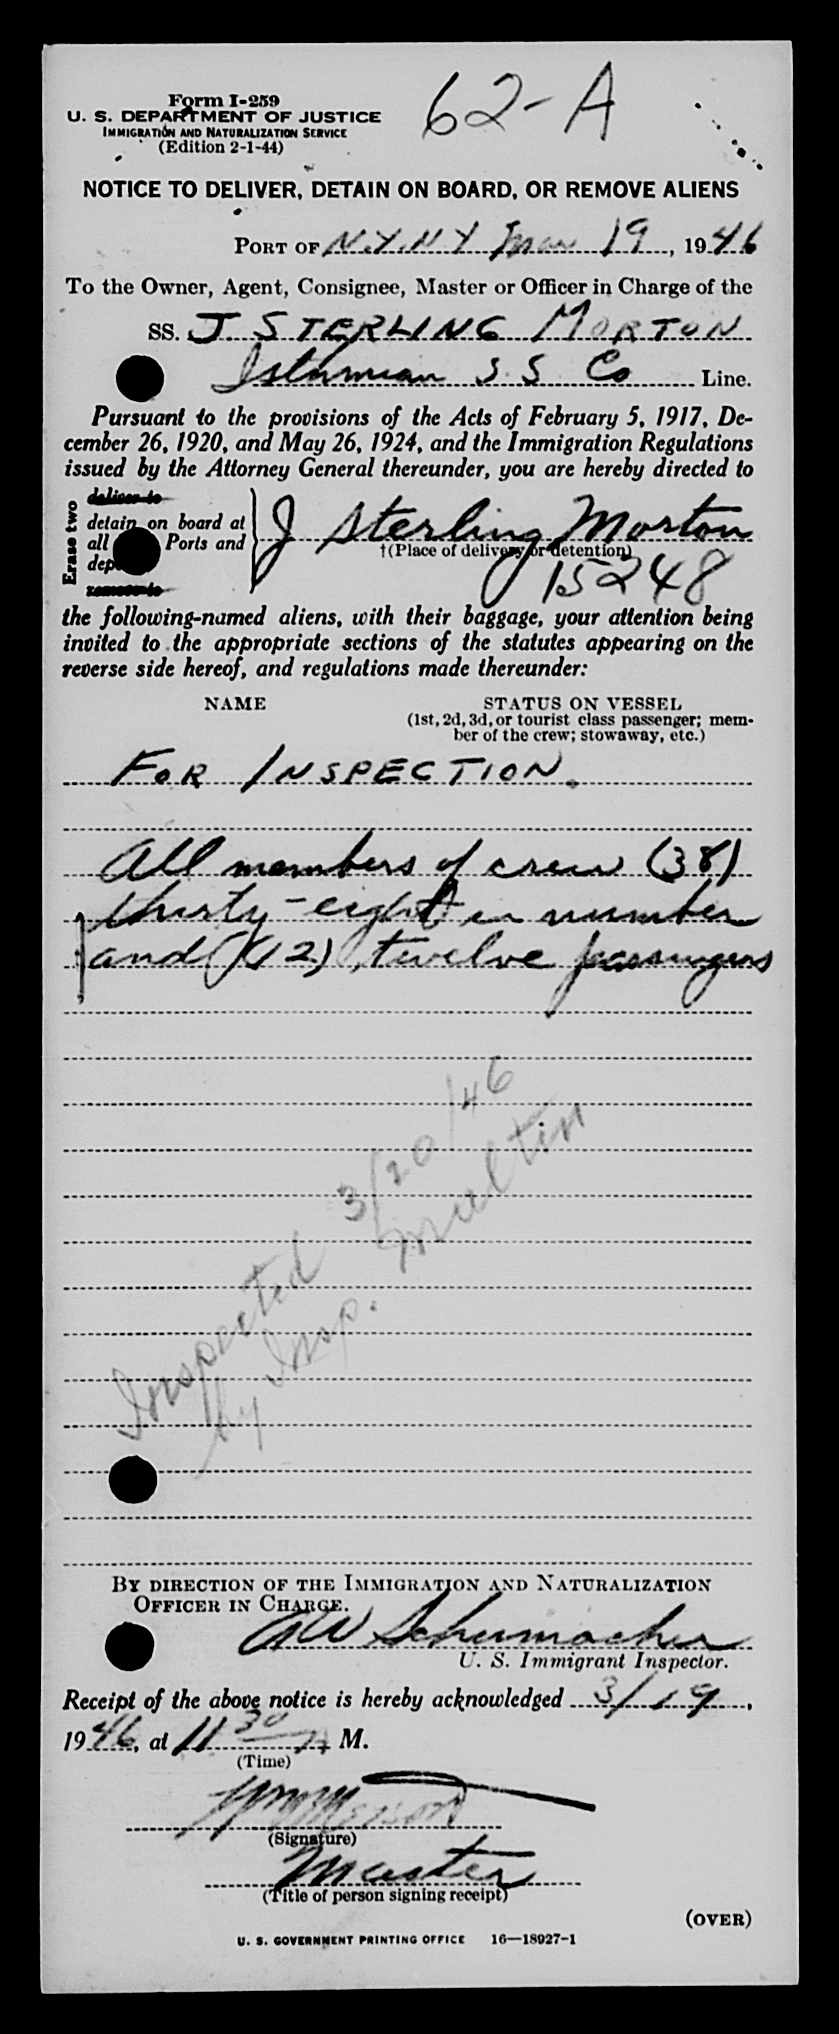 Form I-259
62-A
U. S. DEPARTMENT OF JUSTICE
IMMIGRATION AND NATURALIZATION SERVICE
(Edition 2-1-44)
NOTICE TO DELIVER, DETAIN ON BOARD, OR REMOVE ALIENS
PORT OF N.Y. N Y Mar 19, 1946
To the Owner, Agent, Consignee, Master or Officer in Charge of the
SS. J STERLING MORTON
Isthmian S. S. Co Line.
Pursuant to the provisions of the Acts of February 5, 1917, De-
cember 26, 1920, and May 26, 1924, and the Immigration Regulations
issued by the Attorney General thereunder, you are hereby directed to
Erase two
deliver to
detain on board at
all Ports and
J Sterling Morton
†(Place of delivery or detention)
15248
remove to
the following-named aliens, with their baggage, your attention being
invited to the appropriate sections of the statutes appearing on the
reverse side hereof, and regulations made thereunder:
NAME
STATUS ON VESSEL
(1st, 2d, 3d, or tourist class passenger; mem-
ber of the crew; stowaway, etc.)
FOR INSPECTION.
All members of crew (38)
thirty-eight in number
and (12) twelve passengers
Inspected 3/20/46
by Insp. Multin
BY DIRECTION OF THE IMMIGRATION AND NATURALIZATION
OFFICER IN CHARGE.
AW Schumacher
U. S. Immigrant Inspector.
Receipt of the above notice is hereby acknowledged 3/19,
1946, at 11 30 A M.
(Time)
(Signature)
Master
(Title of person signing receipt)
(OVER)
U. S. GOVERNMENT PRINTING OFFICE 16—18927-1